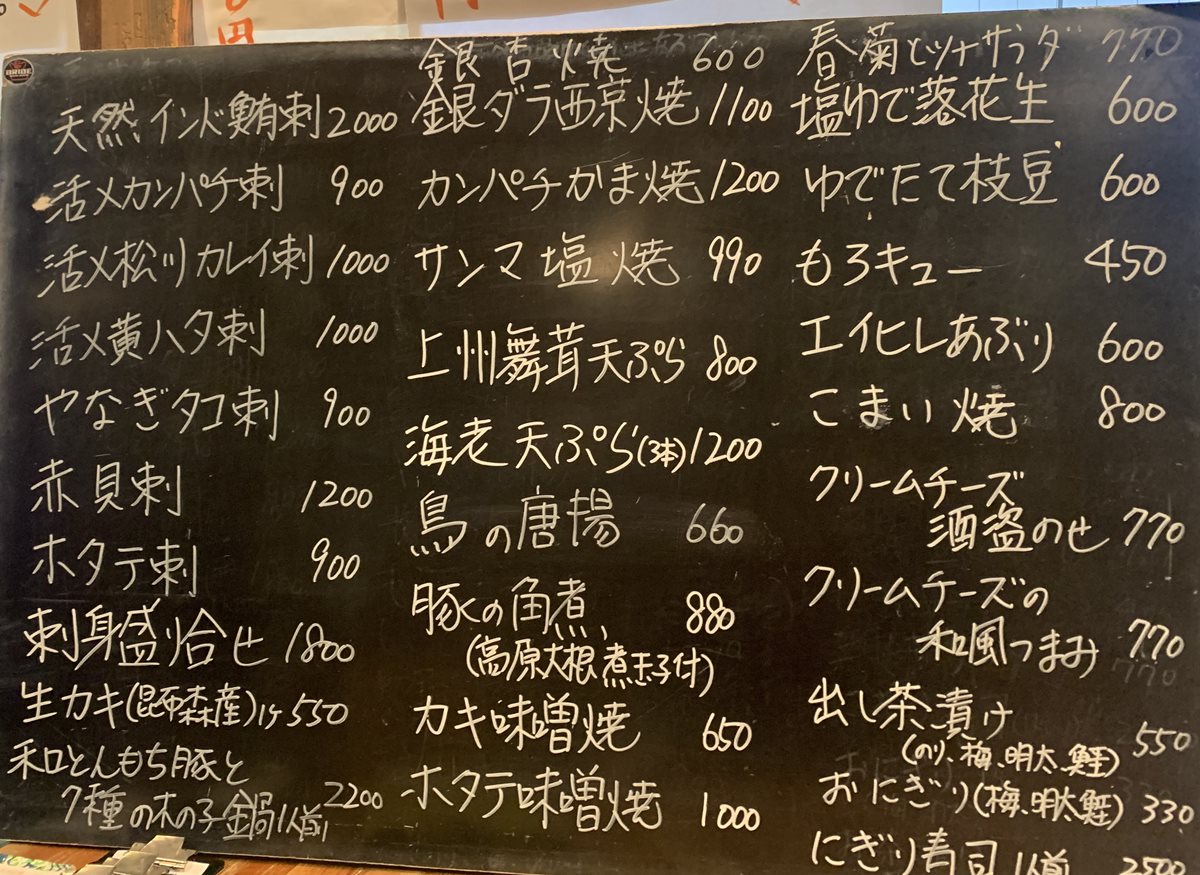 天然インド鮪刺 2000
活〆カンパチ刺 900
活〆松川カレイ刺 1000
活〆黄ハタ刺 1000
やなぎタコ刺 900
赤貝刺 1200
ホタテ刺 900
刺身盛り合せ 1800
生カキ(昆布森産)1ヶ 550
和とんもち豚と
7種の木の子鍋1人前 2200
銀杏火焼 600
銀ダラ西京焼 1100
カンパチかま焼 1200
サンマ塩焼 990
上州舞茸天ぷら 800
海老天ぷら(3本) 1200
鳥の唐揚 660
豚の角煮 880
(高原大根煮玉子付)
カキ味噌焼 650
ホタテ味噌焼 1000
春菊とツナサラダ 770
塩ゆで落花生 600
ゆでたて枝豆 600
もろキュー 450
エイヒレあぶり 600
こまい焼 800
クリームチーズ
酒盗のせ 770
クリームチーズの
和風つまみ 770
出し茶漬け
(のり、梅、明太、鮭) 550
おにぎり(梅、明太、鮭) 330
にぎり寿司1人前 2500